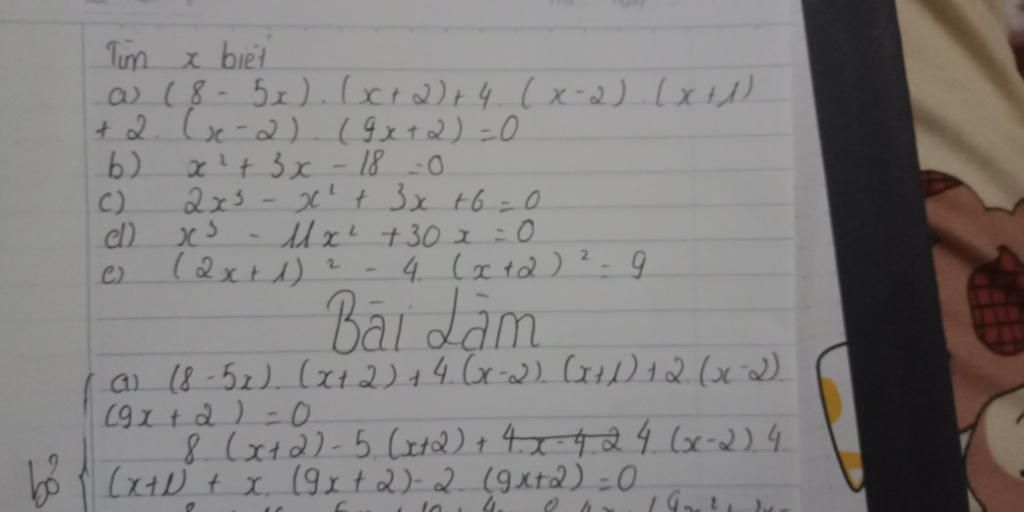 Tìm x biết
a) (8 - 5x) . (x + 2) + 4 . (x - 2) . (x + 1)
+ 2 . (x - 2) . (9x + 2) = 0
b) x² + 3x - 18 = 0
c) 2x³ - x² + 3x + 6 = 0
d) x³ - 11x² + 30x = 0
e) (2x + 1)² - 4 . (x + 2)² = 9
Bài Làm
a) (8 - 5x) . (x + 2) + 4 . (x - 2) . (x + 1) + 2 . (x - 2) .
(9x + 2) = 0
8 . (x + 2) - 5 . (x + 2) + 4 . (x - 2) . 4
bỏ (x + 1) + x . (9x + 2) - 2 . (9x + 2) = 0